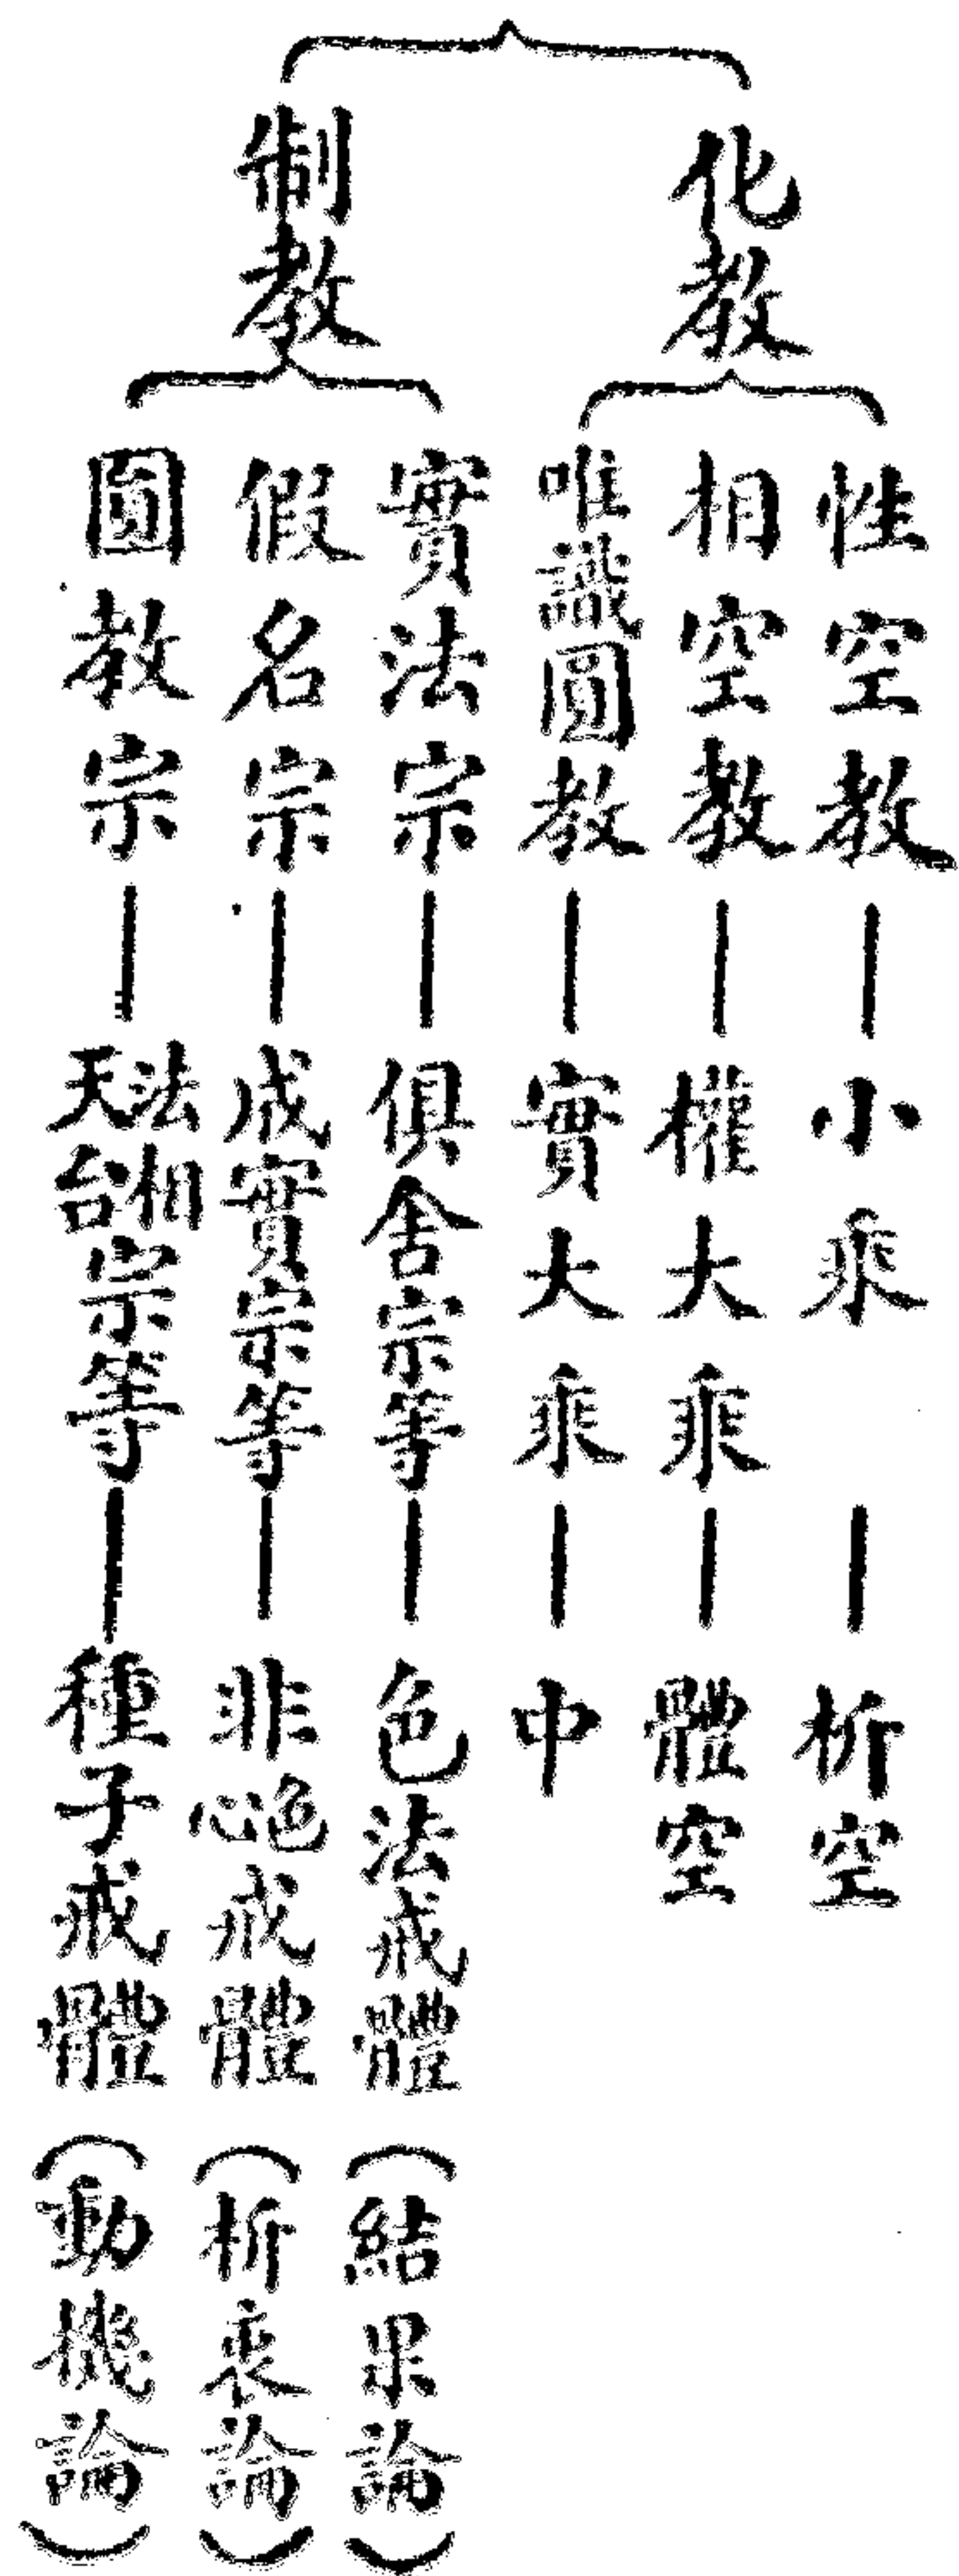 化教
性空教—小乘—析空
相空教—權大乘—體空
唯識圓教—實大乘—中
制教
實法宗—俱舍宗等—色法戒體（結果論）
假名宗—成實宗等—非色心戒體（析衷論）
圓教宗—法相天台宗等—種子戒體（動機論）